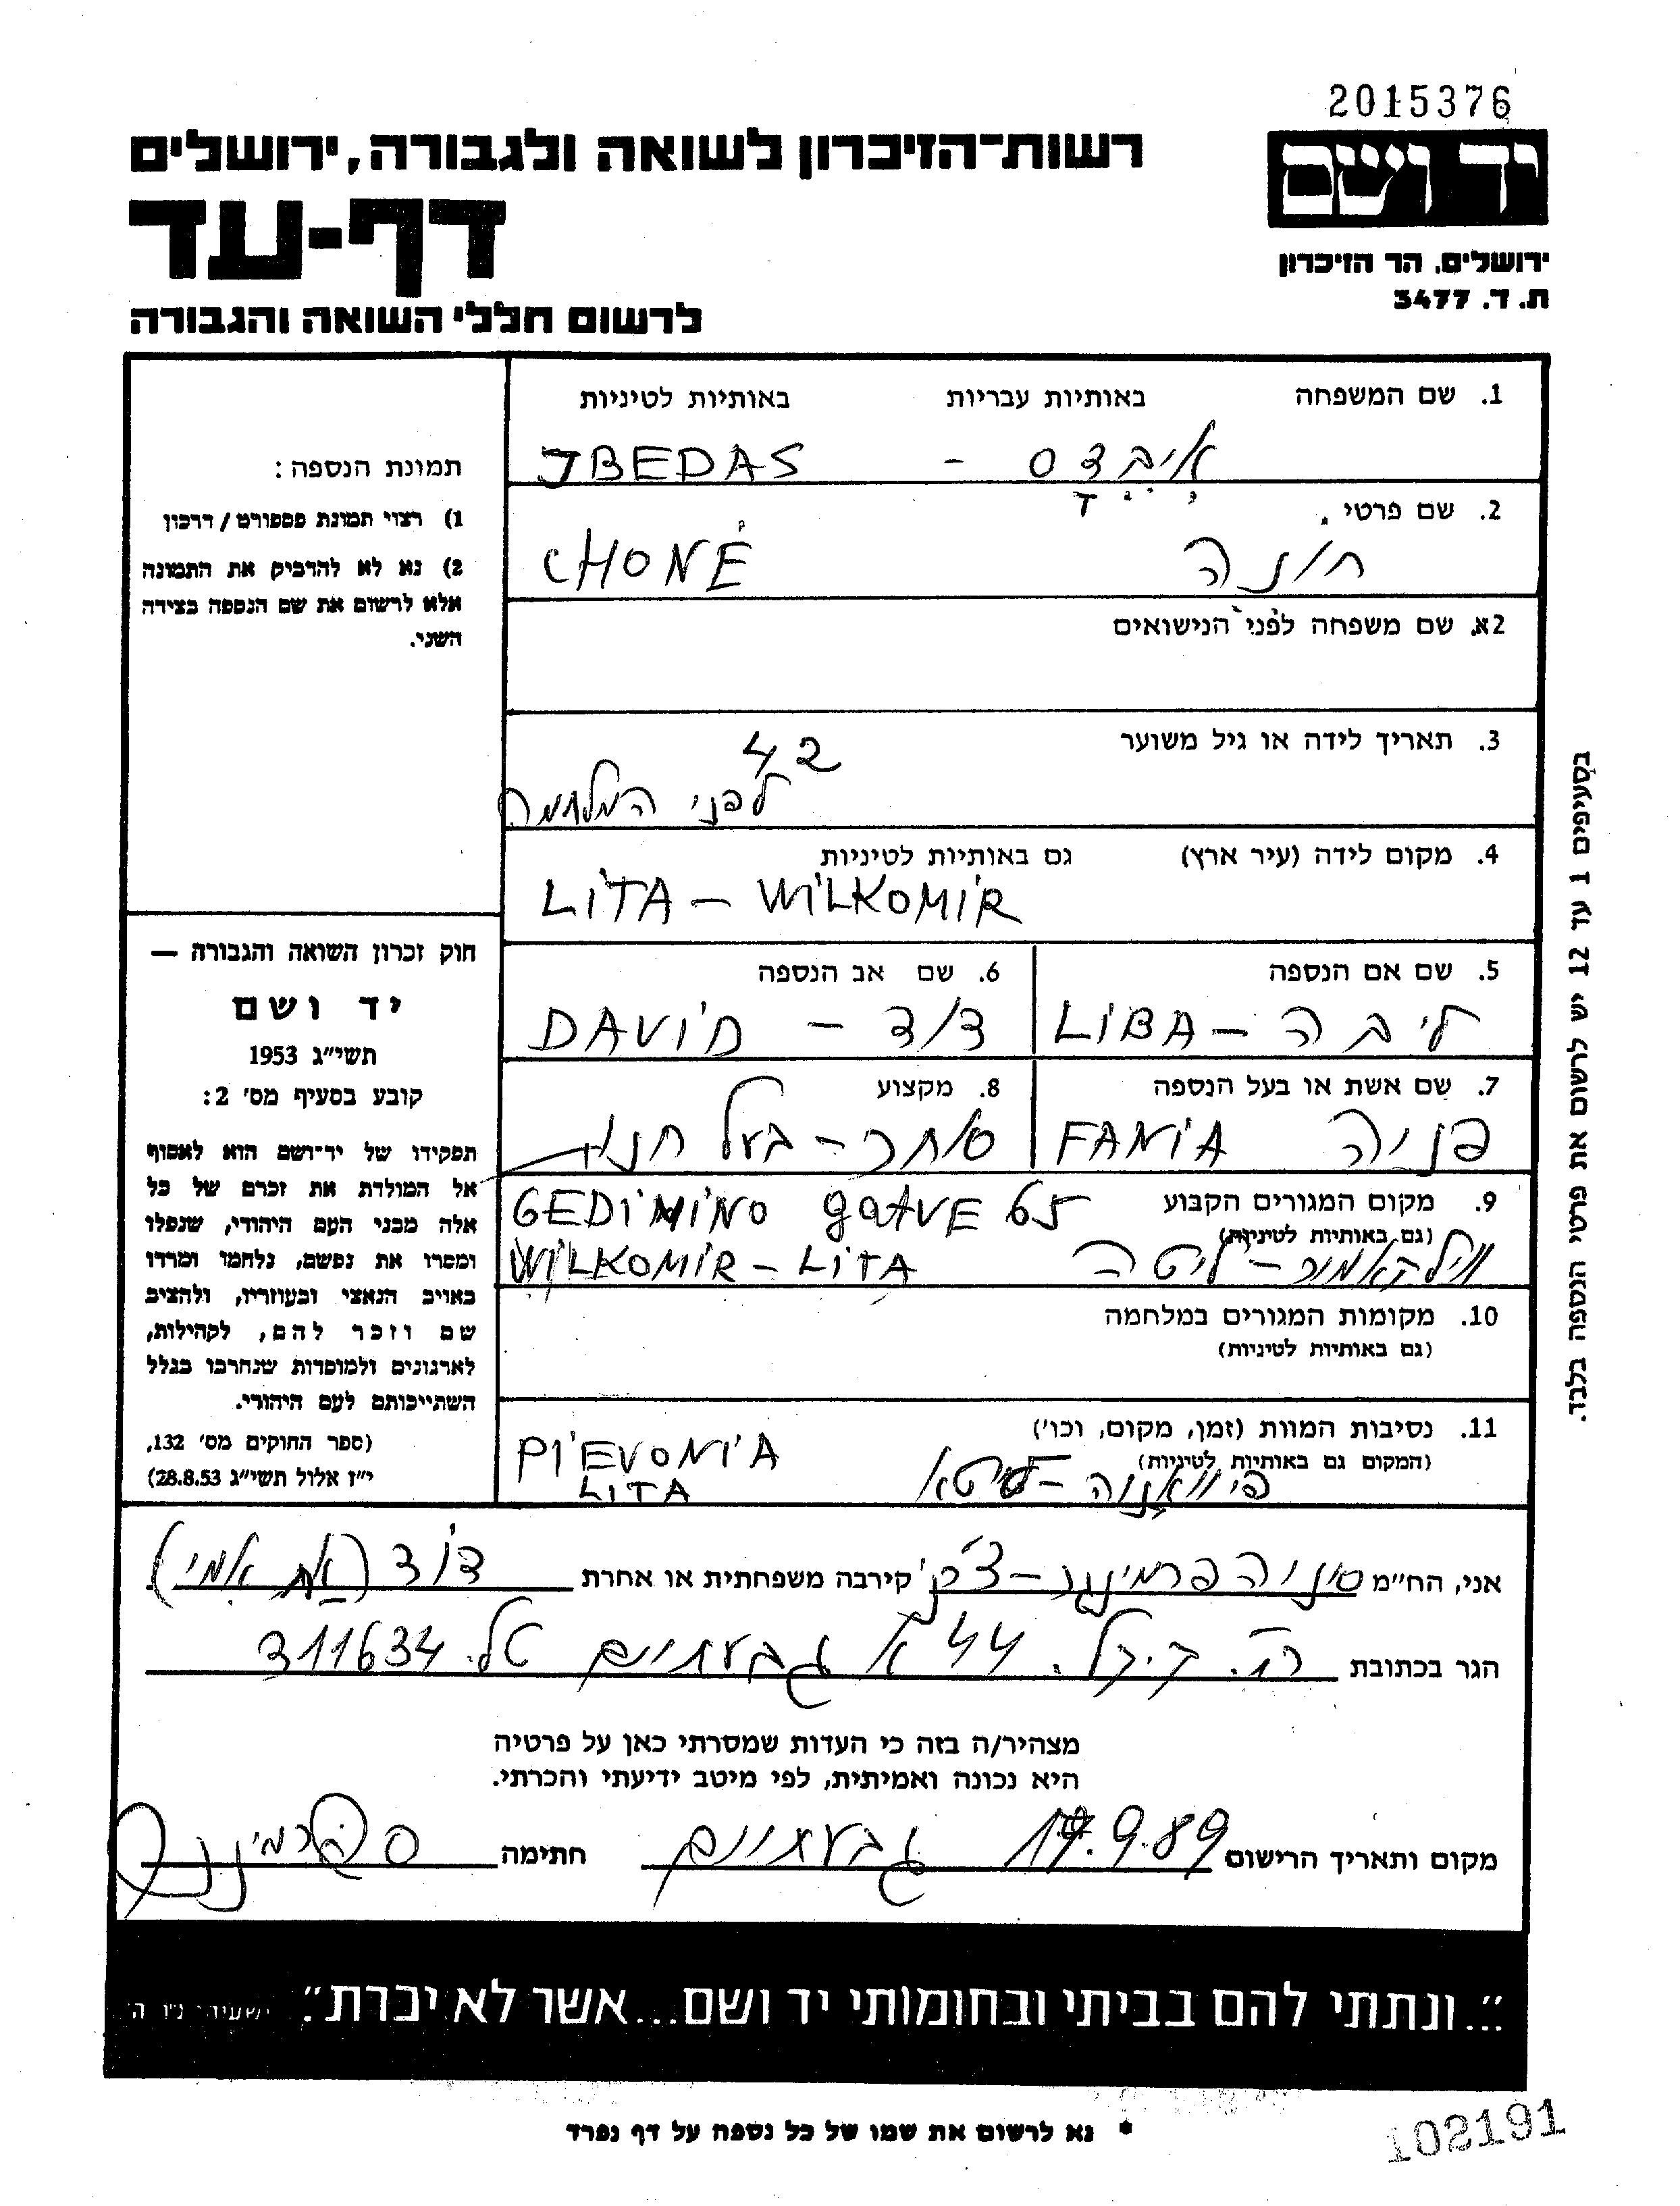 2015376
רשות־הזיכרון לשואה ולגבורה, ירושלים
יד ושם
דף-עד
ירושלים, הר הזיכרון
ת. ד. 3477
לרשום חללי השואה והגבורה
1. שם המשפחה באותיות עבריות באותיות לטיניות
איבדס - JBEDAS
2. שם פרטי
חונה CHONE
2א. שם משפחה לפני הנישואים
3. תאריך לידה או גיל משוער
42
לפני המלחמה
4. מקום לידה (עיר ארץ) גם באותיות לטיניות
LITA - WILKOMIR
5. שם אם הנספה 6. שם אב הנספה
ליבה - LIBA דוד - DAVID
7. שם אשת או בעל הנספה 8. מקצוע
פניה FANIA סוחר - בעל חנות
9. מקום המגורים הקבוע GEDIMINO gatVE 65
(גם באותיות לטיניות)
וילקאמיר - ליטה WILKOMIR - LITA
10. מקומות המגורים במלחמה
(גם באותיות לטיניות)
11. נסיבות המוות (זמן, מקום, וכו')
(המקום גם באותיות לטיניות)
פיוואניה - ליטא PIEVONIA
LITA
תמונת הנספה:
1) רצוי תמונת פספורט / דרכון
2) נא לא להדביק את התמונה
אלא לרשום את שם הנספה בצידה
השני.
חוק זכרון השואה והגבורה —
יד ושם
תשי"ג 1953
קובע בסעיף מס' 2:
תפקידו של יד־ושם הוא לאסוף
אל המולדת את זכרם של כל
אלה מבני העם היהודי, שנפלו
ומסרו את נפשם, נלחמו ומרדו
באויב הנאצי ובעוזריו, ולהציב
שם וזכר להם, לקהילות,
לארגונים ולמוסדות שנחרבו בגלל
השתייכותם לעם היהודי.
(ספר החוקים מס' 132,
י"ז אלול תשי"ג 28.8.53)
בסעיפים 1 עד 12 יש לרשום את פרטי הנספה בלבד.
אני, הח"מ פרמינגר קירבה משפחתית או אחרת דוד (אח אמי)
הגר בכתובת רח. ק.ק.ל. 44 א גבעתיים טל. 311634
מצהיר/ה בזה כי העדות שמסרתי כאן על פרטיה
היא נכונה ואמיתית, לפי מיטב ידיעתי והכרתי.
מקום ותאריך הרישום 17.9.89 גבעתיים חתימה ס פרמינגר
"...ונתתי להם בביתי ובחומותי יד ושם...אשר לא יכרת". ישעיהו נ"ו ה'
* נא לרשום את שמו של כל נספה על דף נפרד
102191